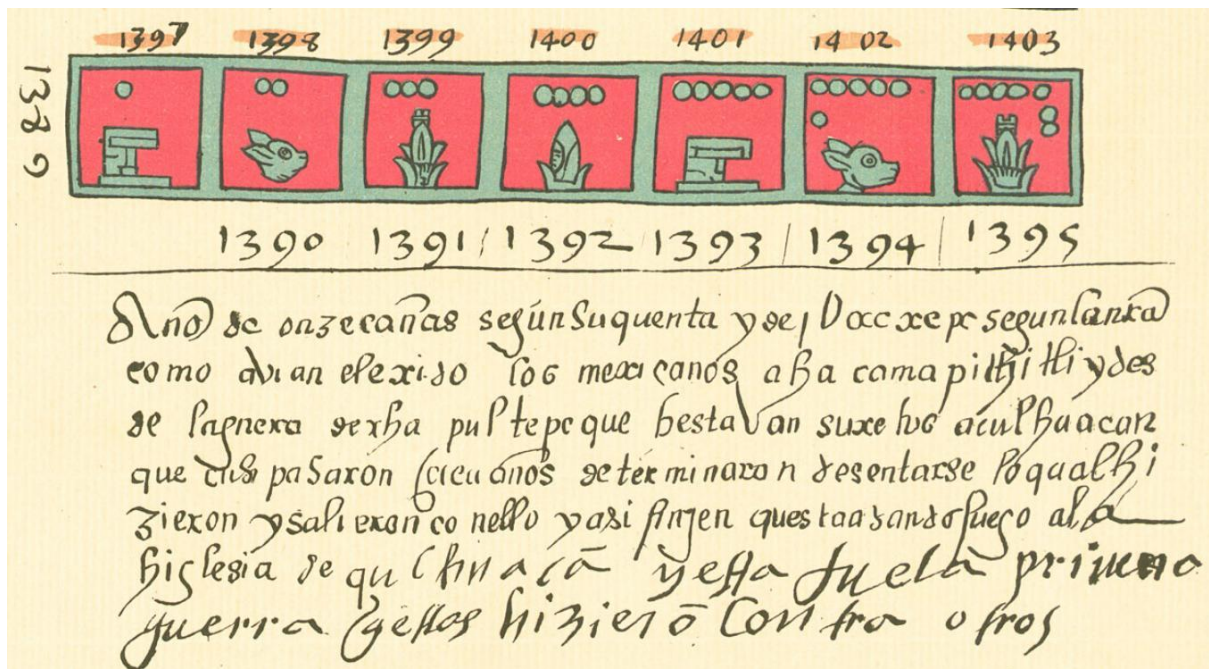 1397 1398 1399 1400 1401 1402 1403
1389
1390 1391 1392 1393 1394 1395
Año de onze cañas según su quenta y de segun la nra
como avian elexido los mexicanos a ha camapichitli y des
de la gnerra de cha pultepeque hestavan suxetos a culhuacan
que pasaron años determinaron desentarse lo qual hi
zieron y salieron con ello y asi finjen questa adando fuego a la
higlesia de qulhuacã y esta fue la primera
guerra qellos hizierõ contra otros